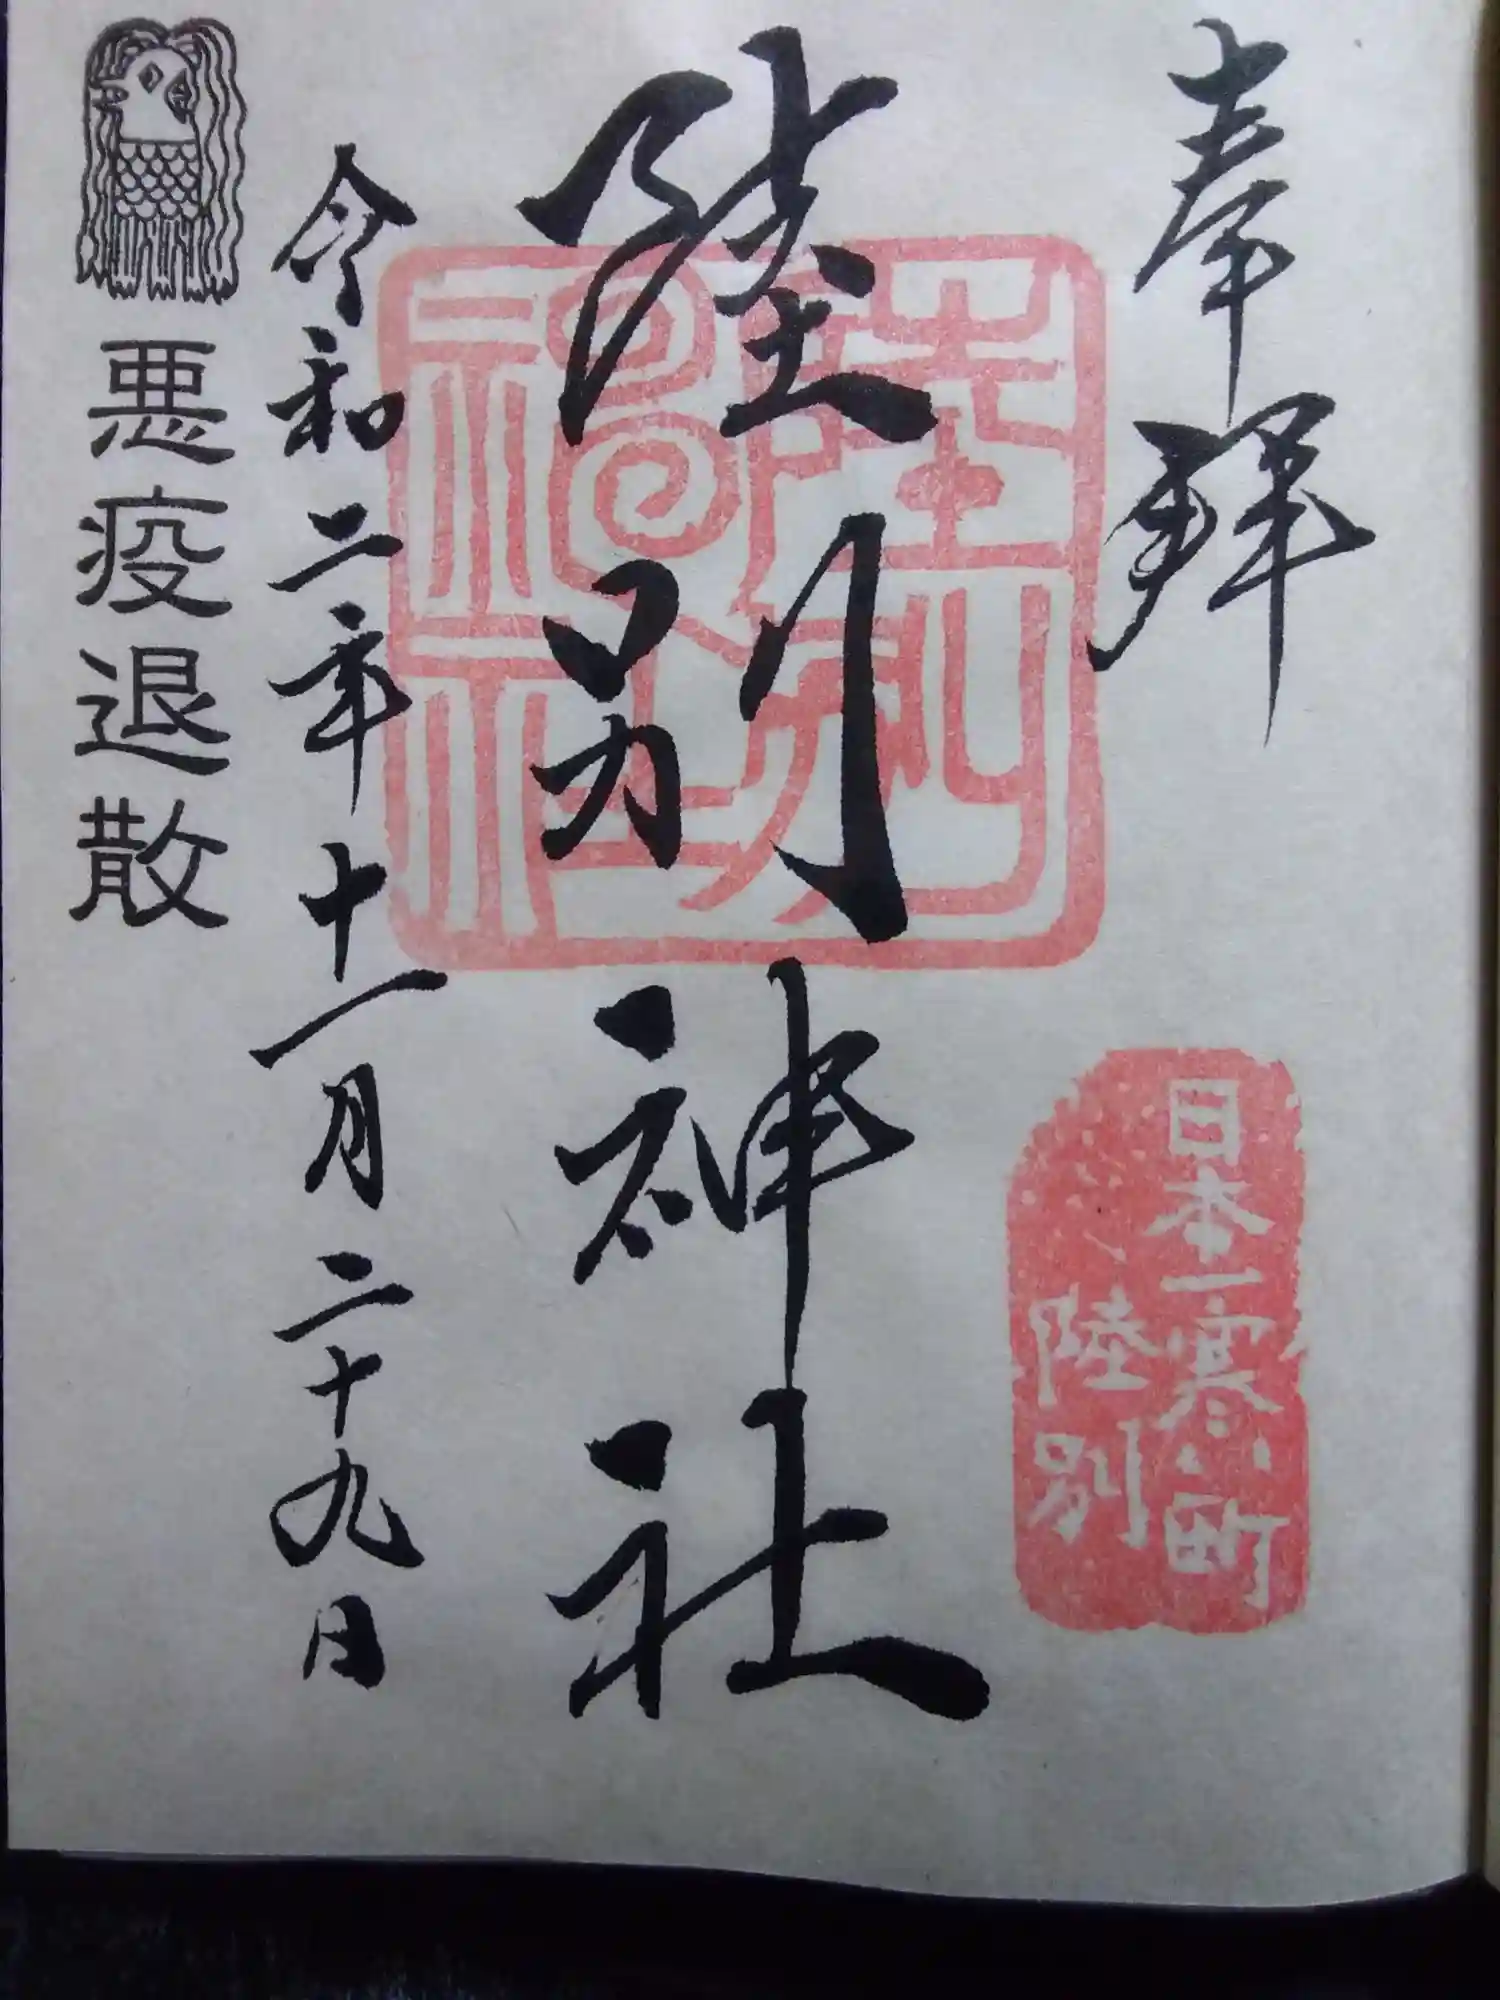 奉拝
日本一寒い町
陸別
陸別神社
陸別神社
令和二年十一月二十九日
悪疫退散